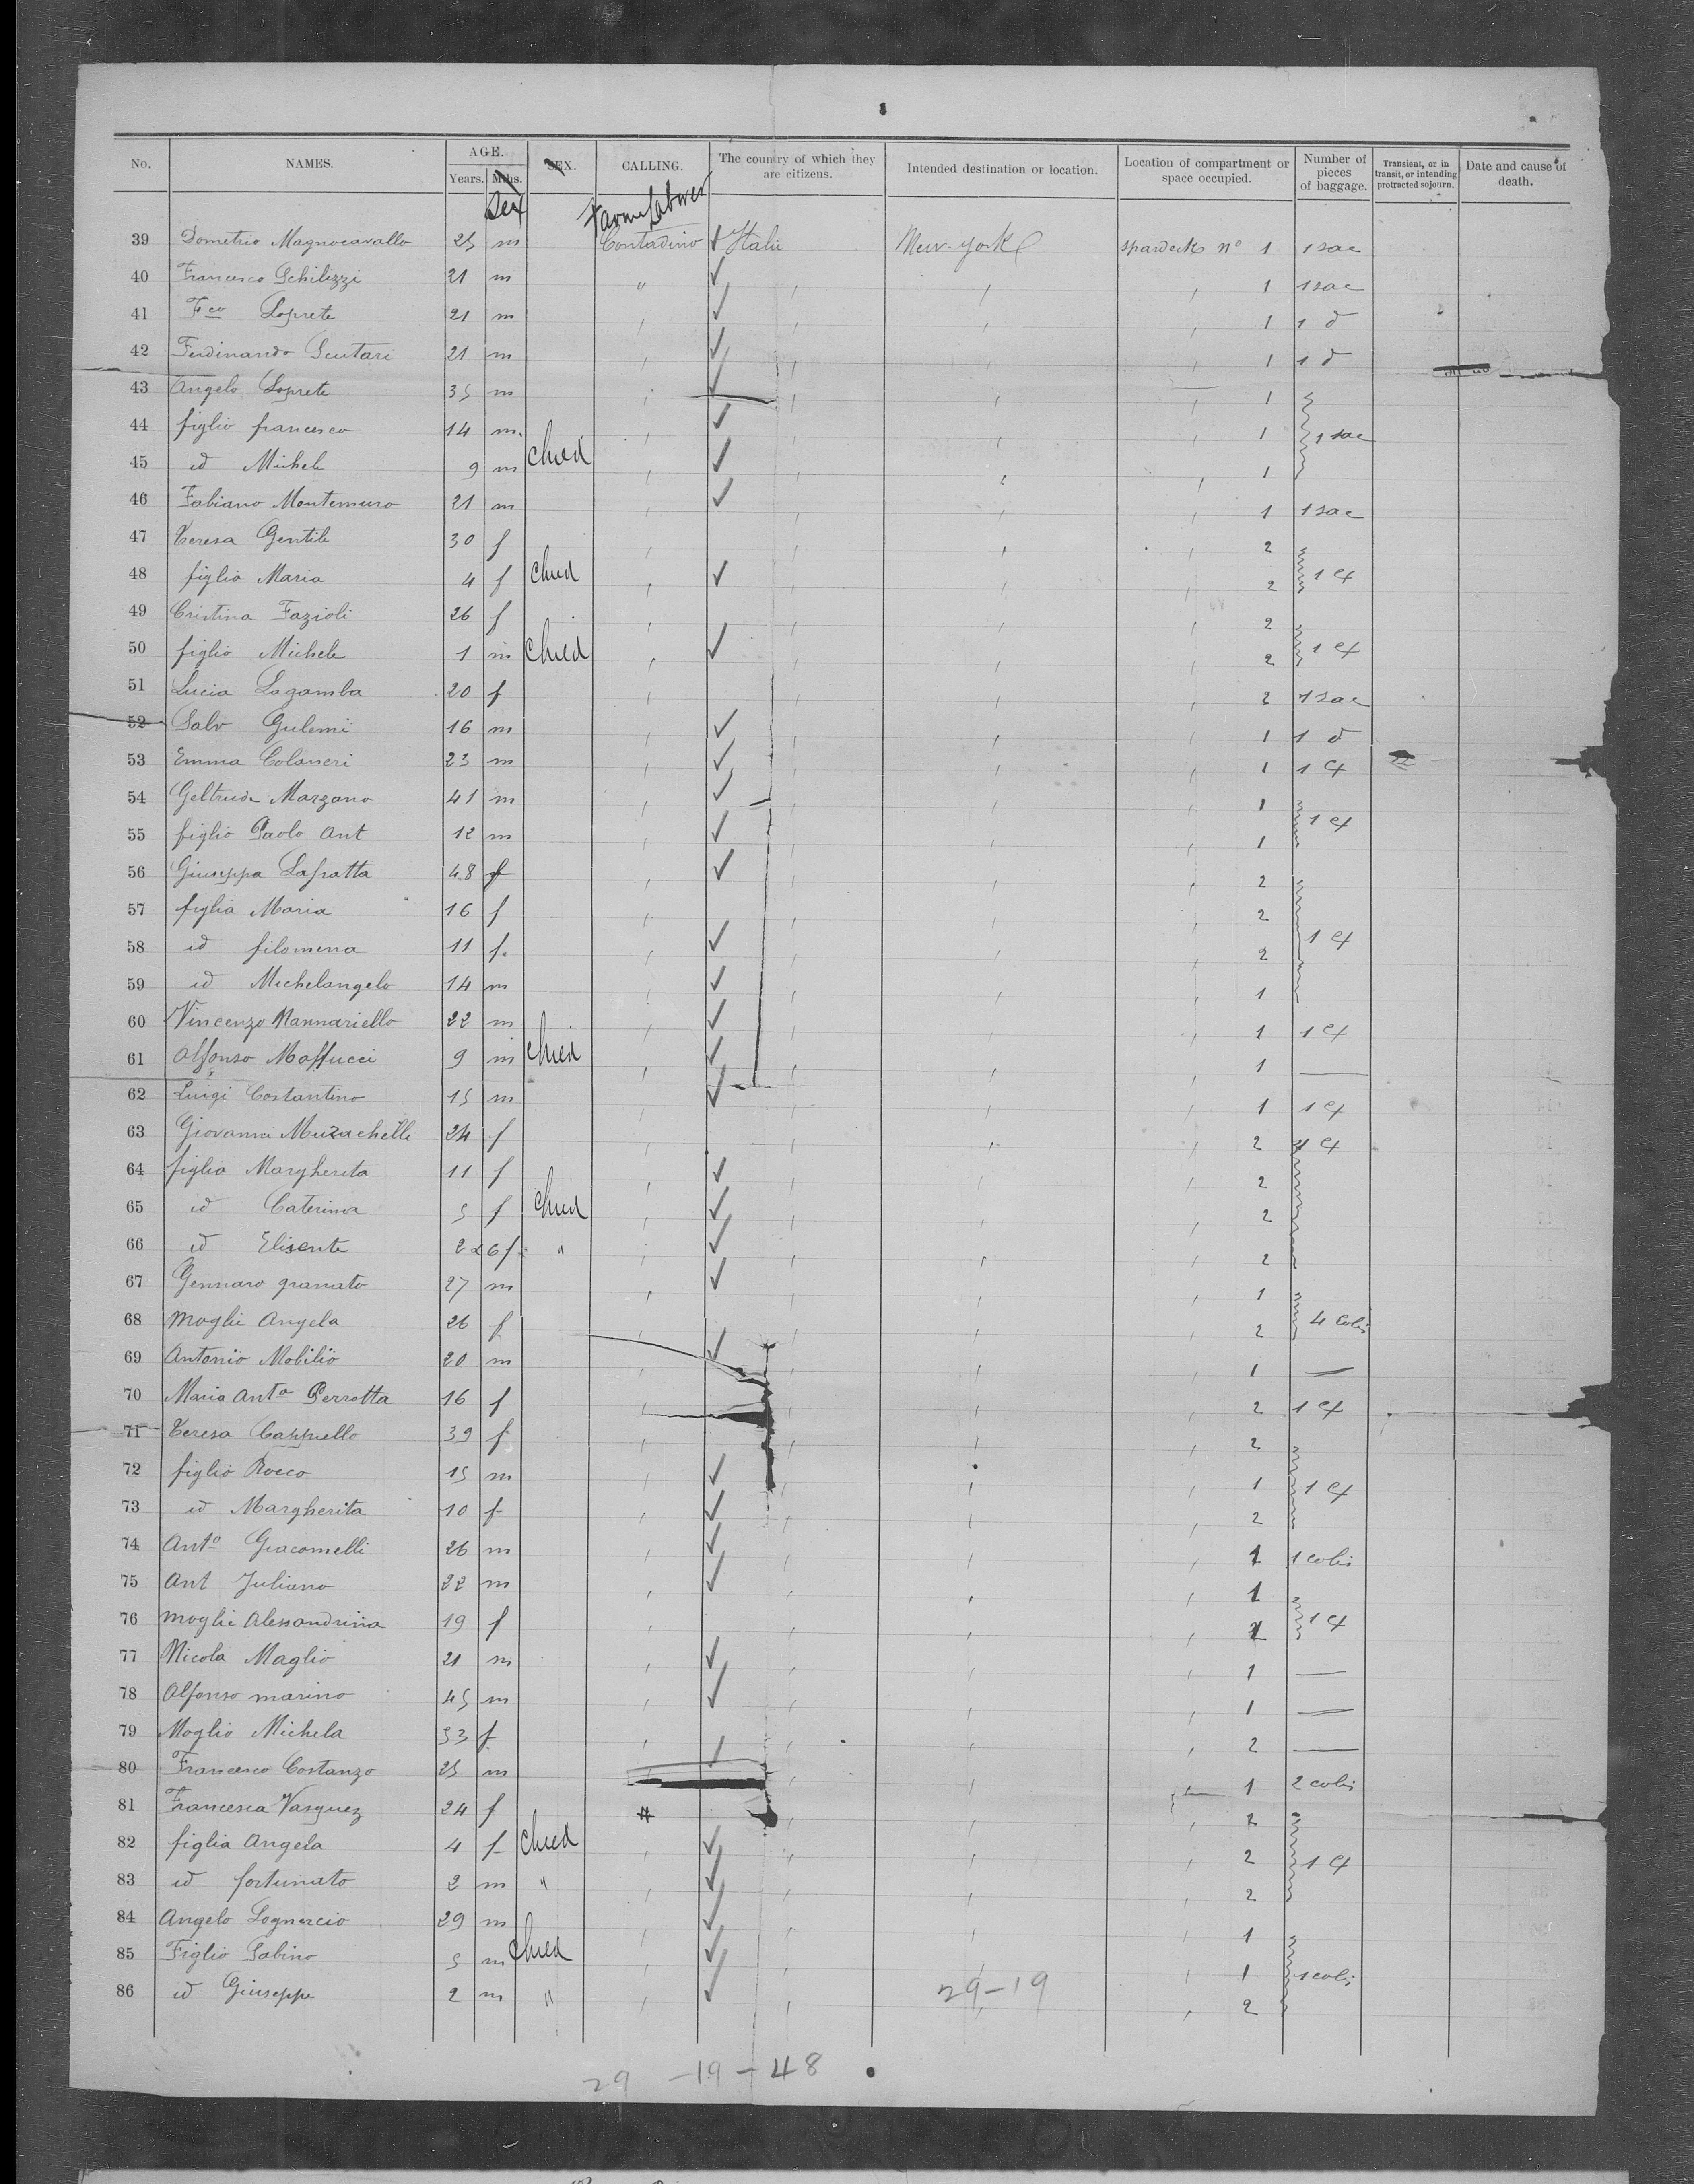 No. NAMES. AGE. Years. Mths. SEX. CALLING. The country of which they are citizens. Intended destination or location. Location of compartment or space occupied. Number of pieces of baggage. Transient, or in transit, or intending protracted sojourn. Date and cause of death.
Sex Farm Laborer
39 Dometrio Magnocavallo 25 m Contadino ✓ Italie New-York spardeck n° 1 1 sac
40 Francesco Schilizzi 21 m " ✓ 1 1 sac
41 Fco Loprete 21 m ✓ 1 1 d
42 Ferdinando Scutari 21 m ✓ 1 1 d
43 Angelo Loprete 35 m ✓ 1
44 figlio francesco 14 m. ✓ 1 1 sac
45 id Michele 9 m Child ✓ 1
46 Fabiano Montemuro 21 m ✓ 1 1 sac
47 Teresa Gentile 30 f 2
48 figlia Maria 4 f Child ✓ 2 1 cx
49 Cristina Fazioli 26 f 2
50 figlio Michele 1 m Child ✓ 2 1 cx
51 Lucia Lagamba 20 f 2 1 sac
52 Salv Gulemi 16 m ✓ 1 1 d
53 Emma Colaneri 23 m ✓ 1 1 cx
54 Geltrude Marzano 41 m ✓ 1
55 figlio Paolo Ant 12 m ✓ 1 1 cx
56 Giuseppa Lafratta 48 f ✓ 2
57 figlia Maria 16 f 2
58 id filomena 11 f. ✓ 2 1 cx
59 id Michelangelo 14 m ✓ 1
60 Vincenzo Mannariello 22 m ✓ 1 1 cx
61 Alfonso Maffucci 9 m Child ✓ 1 —
62 Luigi Costantino 15 m ✓ 1 1 cx
63 Giovanna Muzachelli 24 f 2 1 cx
64 figlia Margherita 11 f ✓ 2
65 id Caterina 5 f Child ✓ 2
66 id Elisente 2 6 f " ✓ 2
67 Gennaro granato 27 m ✓ 1
68 Moglie Angela 26 f 2 4 Colis
69 Antonio Mobilio 20 m ✓ 1 —
70 Maria Anta Perrotta 16 f 2 1 cx
71 Teresa Cappiello 39 f 2
72 figlio Rocco 15 m ✓ 1 1 cx
73 id Margherita 10 f ✓ 2
74 Anto Giacomelli 26 m ✓ 1 1 colis
75 Ant Juliano 22 m ✓ 1
76 moglie Alessandrina 19 f 2 1 cx
77 Nicola Maglio 21 m ✓ 1 —
78 Alfonso marino 45 m ✓ 1 —
79 Moglie Michela 33 f 2 —
80 Francesco Costanzo 25 m ✓ 1 2 colis
81 Francesca Vasquez 24 f 2
82 figlia Angela 4 f Child ✓ 2
83 id fortunato 2 m " ✓ 2 1 cx
84 Angelo Lognercio 29 m ✓ 1
85 Figlio Sabino 5 m Child ✓ 1 1 colis
86 id Giuseppe 2 m " ✓ 2
29-19
29 -19-48